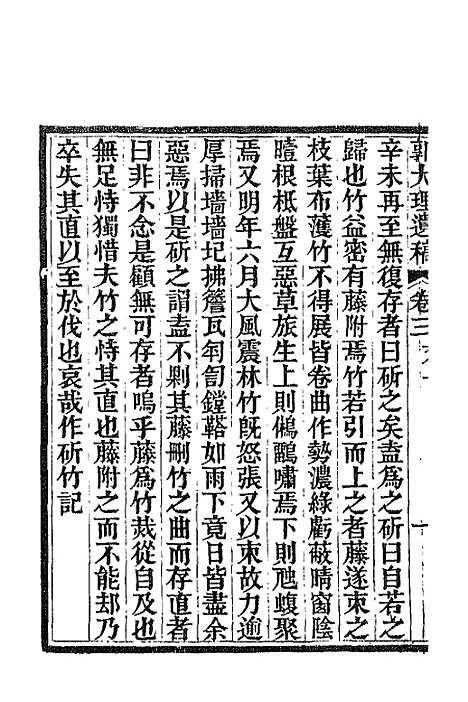 郭大理遺稿 卷三
辛未再至無復存者曰斫之矣盍爲之斫曰自若之
歸也竹益密有藤附焉竹若引而上之者藤遂束之
枝葉布濩竹不得展皆卷曲作勢濃綠虧蔽晴窗陰
曀根柢盤互惡草旅生上則鵂鶹嘯焉下則虺蝮聚
焉又明年六月大風震林竹旣怒張又以束故力逾
厚掃墻墻圮拂簷瓦匉訇鏜鞳如雨下竟日皆盡余
惡焉以是斫之謂盍不剿其藤刪竹之曲而存直者
曰非不念是顧無可存者嗚乎藤爲竹烖從自及也
無足恃獨惜夫竹之恃其直也藤附之而不能却乃
卒失其直以至於伐也哀哉作斫竹記